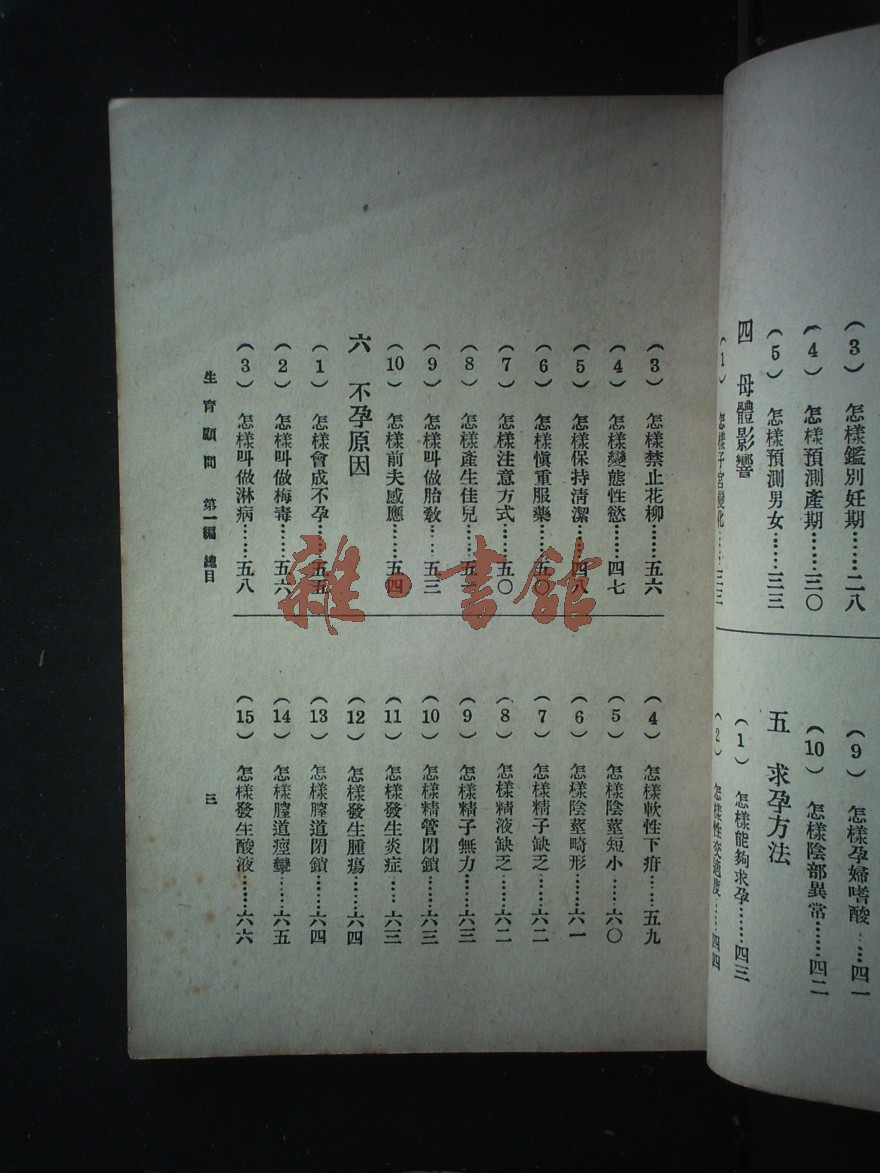 (3) 怎樣鑑別妊期……二八
(4) 怎樣預測產期……三〇
(5) 怎樣預測男女……三三
四 母體影響
(1) 怎樣子宮變化……三三
(9) 怎樣孕婦嗜酸……四一
(10) 怎樣陰部異常……四二
五 求孕方法
(1) 怎樣能夠求孕……四三
(2) 怎樣性交適度……四四
(3) 怎樣禁止花柳……五六
(4) 怎樣變態性慾……四七
(5) 怎樣保持清潔……四八
(6) 怎樣愼重服藥……五〇
(7) 怎樣注意方式……五〇
(8) 怎樣產生佳兒……五
(9) 怎樣叫做胎敎……五三
(10) 怎樣前夫感應……五四
六 不孕原因
(1) 怎樣會成不孕……五五
(2) 怎樣叫做梅毒……五六
(3) 怎樣叫做淋病……五八
(4) 怎樣軟性下疳……五九
(5) 怎樣陰莖短小……六〇
(6) 怎樣陰莖畸形……六一
(7) 怎樣精子缺乏……六二
(8) 怎樣精液缺乏……六二
(9) 怎樣精子無力……六三
(10) 怎樣精管閉鎖……六三
(11) 怎樣發生炎症……六三
(12) 怎樣發生腫瘍……六四
(13) 怎樣膣道閉鎖……六四
(14) 怎樣膣道痙攣……六五
(15) 怎樣發生酸液……六六
生育顧問 第一編 總目
三
雜·書館